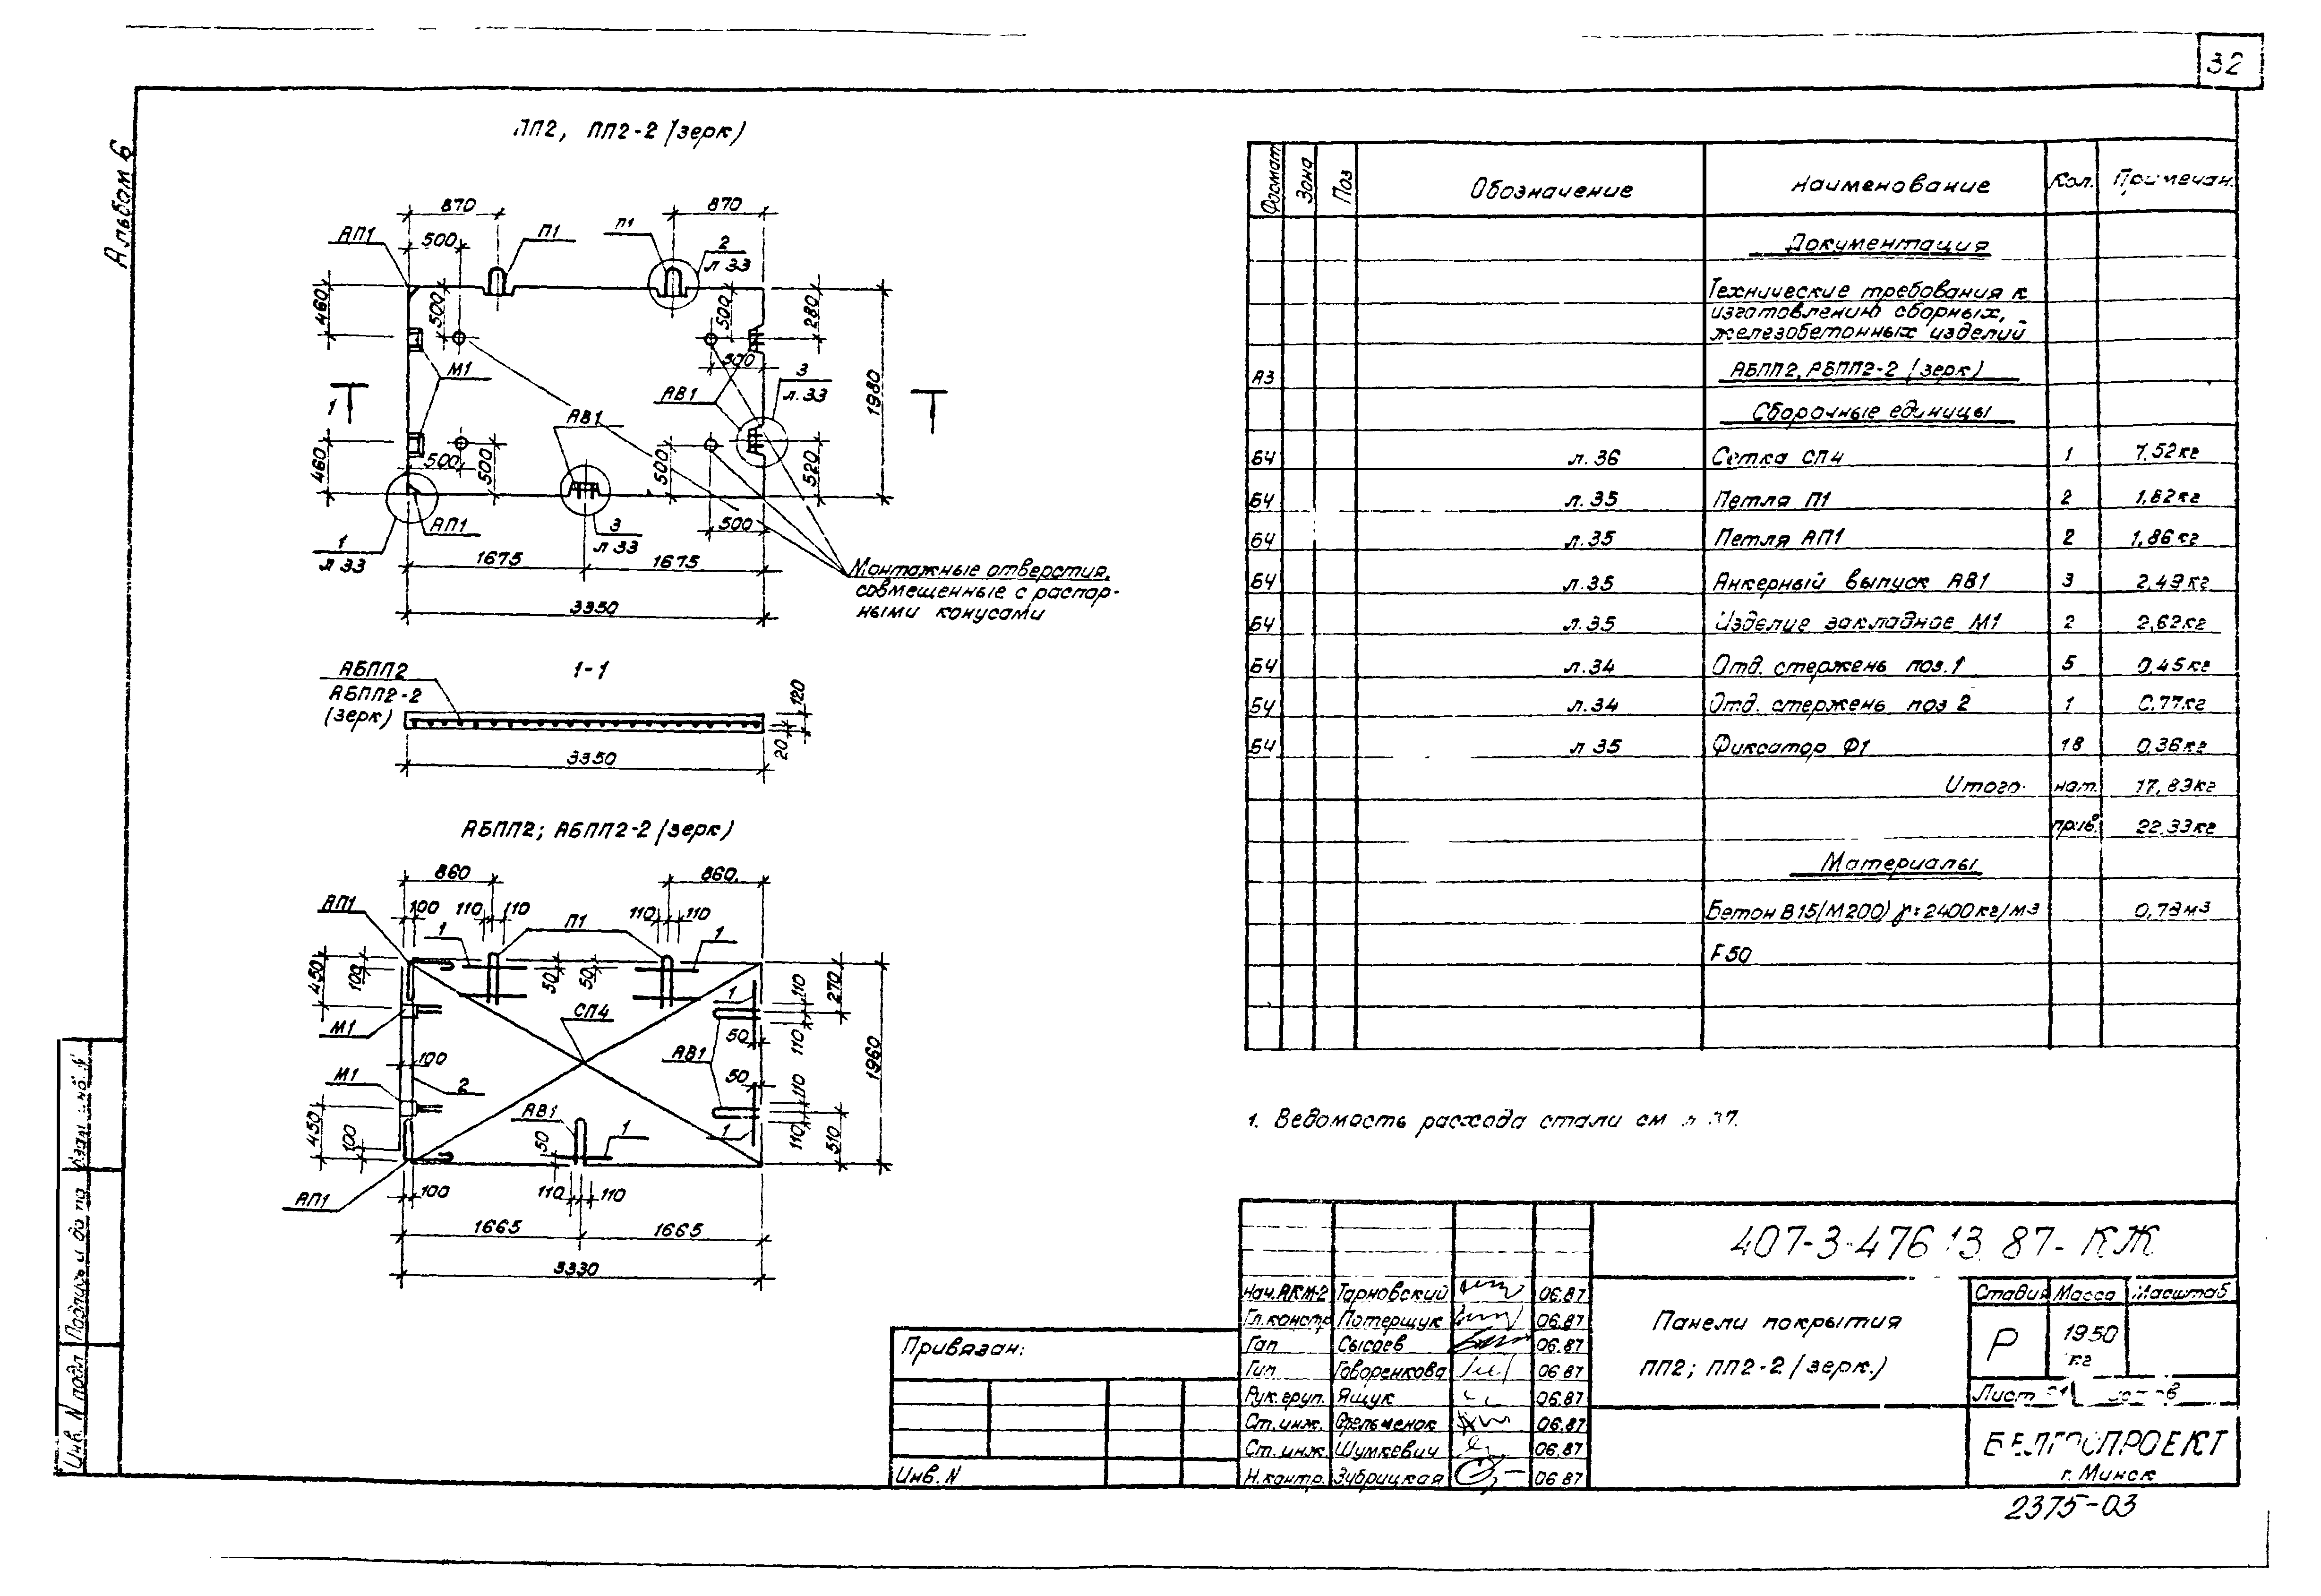 32
Альбом 6
ПП2, ПП2-2 (зерк)
870
870
АП1
500
П1
П1
2
л 33
460
500
500
280
500
М1
3
л.33
1
АВ1
АВ1
1980
460
500
500
500
520
АП1
3
л 33
500
1
л 33
1675
1675
3350
Монтажные отверстия,
совмещенные с распор-
ными конусами
АБПП2
АБПП2-2
(зерк)
1-1
120
20
3350
АБПП2; АБПП2-2 (зерк)
860
860
АП1
100
110
110
П1
110
110
1
1
450
100
50
50
1
110
270
М1
СП4
50
110
АВ1
100
1960
М1
2
50
110
450
100
АВ1
1
50
1
110
510
АП1
100
110
110
1665
1665
3330
Формат
Зона
Поз
Обозначение
Наименование
Кол.
Примечан.
Документация
Технические требования к
изготовлению сборных,
железобетонных изделий
А3
АБПП2, АБПП2-2 (зерк)
Сборочные единицы
БЧ л.36 Сетка СП4 1 7,52кг
БЧ л.35 Петля П1 2 1,82кг
БЧ л.35 Петля АП1 2 1,86кг
БЧ л.35 Анкерный выпуск АВ1 3 2,49кг
БЧ л.35 Изделие закладное М1 2 2,62кг
БЧ л.34 Отд. стержень поз.1 5 0,45кг
БЧ л.34 Отд. стержень поз 2 1 0,77кг
БЧ л 35 Фиксатор Ф1 18 0,36кг
Итого: нат. 17,89кг
прив. 22.33кг
Материалы
Бетон В15(М200) γ=2400кг/м3 0,78м3
F50
1. Ведомость расхода стали см л 37.
407-3-476 13 87-КЖ
Нач.АКМ-2 Тарновский 06.87
Гл.констр Потерщук 06.87
Гап Сысоев 06.87
Гип Говоренкова 06 87
Рук.груп. Ящук 06.87
Ст.инж. 06.87
Ст.инж Шумкевич 06.87
Н.контр. Зубрицкая 06 87
Панели покрытия
ПП2; ПП2-2 (зерк.)
Стадия Масса Масштаб
Р
1950
кг
Лист
БЕЛГОСПРОЕКТ
г. Минск
2375-03
Привязан:
Инв. N
Взам инв. N
Подпись и дата
Инв. N подл